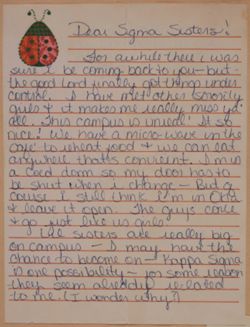 Dear Sigma Sisters!
For awhile there I was
sure I be coming back to you - but -
the good Lord finally got things under
control. I have met other sorority
girls & it makes me really miss ya'
all. This campus is unreal! It so
nice! We have a micro-wave in the
cafe' to reheat food & we can eat
anywhere that's convient. I'm in
a coed dorm so my door has to
be shut when I change - But of
course I still think I'm in
& leave it open. The guys come
& go just like us girls!
Lil sisters are really big
on campus - I may have the
chance to become on - Kappa Sigma
is one possibility - for some reason
they seem already related
to me. (I wonder why?)